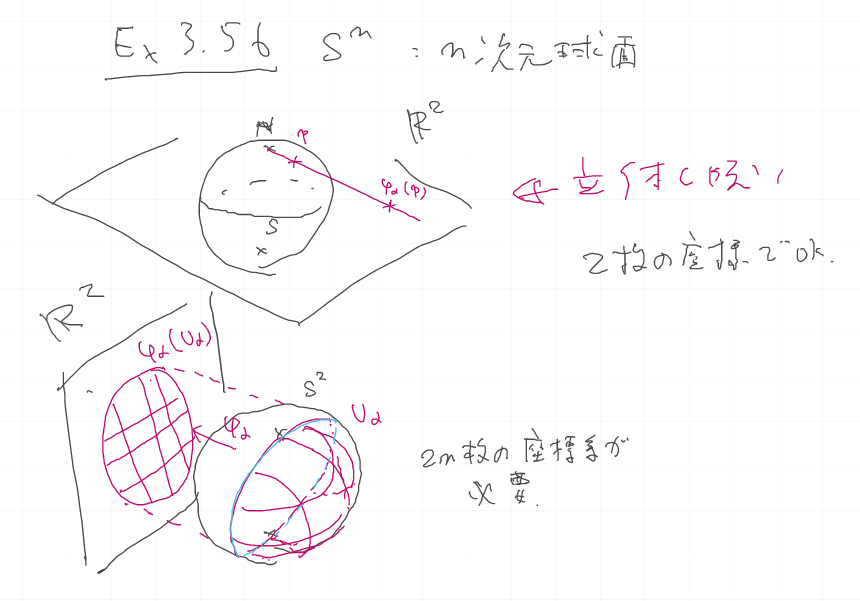 Ex 3.56 Sⁿ : n次元球面
N
p
R²
φα(p)
S
2枚の座標でok.
R²
φα(Uα)
S²
Uα
φα
2n枚の座標系が
必要.